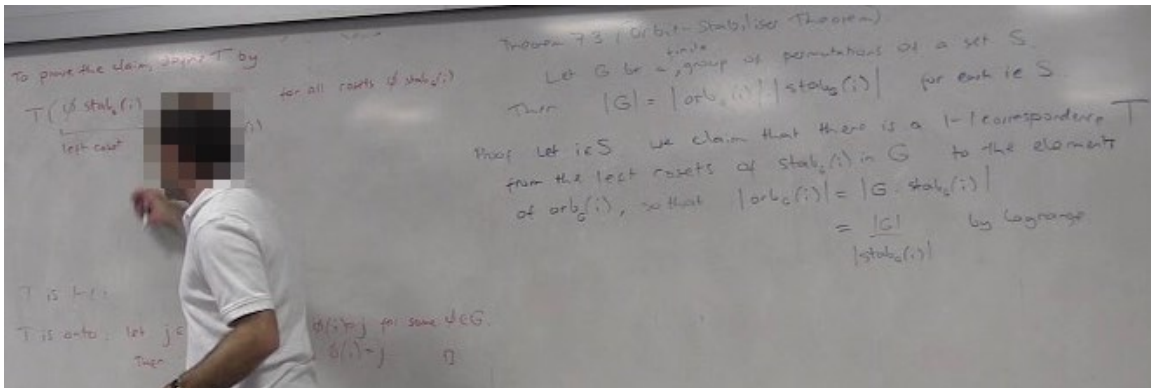 To prove the claim, define T by
T(ϕ stab_G(i) for all cosets ϕ stab_G(i)
left coset (i)
T is 1-1:
T is onto: let j ϕ(i)=j for some ϕ∈G.
Then ϕ(i)=j □
Theorem 7.3 (Orbit-Stabiliser Theorem)
Let G be a finite group of permutations of a set S.
Then |G| = |orb_G(i)| |stab_G(i)| for each i∈S
Proof Let i∈S We claim that there is a 1-1 correspondence T
from the left cosets of stab_G(i) in G to the elements
of orb_G(i), so that |orb_G(i)| = |G : stab_G(i)|
= |G| by Lagrange
|stab_G(i)|